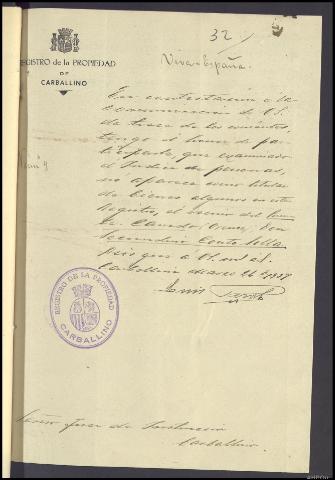 32
REGISTRO de la PROPIEDAD
DE
CARBALLINO
Viva España.
En contestación a la
comunicación de VS.
de trece de los corrientes,
tengo el honor de par-
ticiparle, que examinado
el Indice de personas,
no aparece como titular
de bienes algunos en este
Registro, el vecino del
Secundino Couto Solla
Dios gue a VS. m. a.
Carballino Marzo 16 de 1937
Luis
REGISTRO DE LA PROPIEDAD
CARBALLINO
Señor Juez de Instrucción
Carballino.